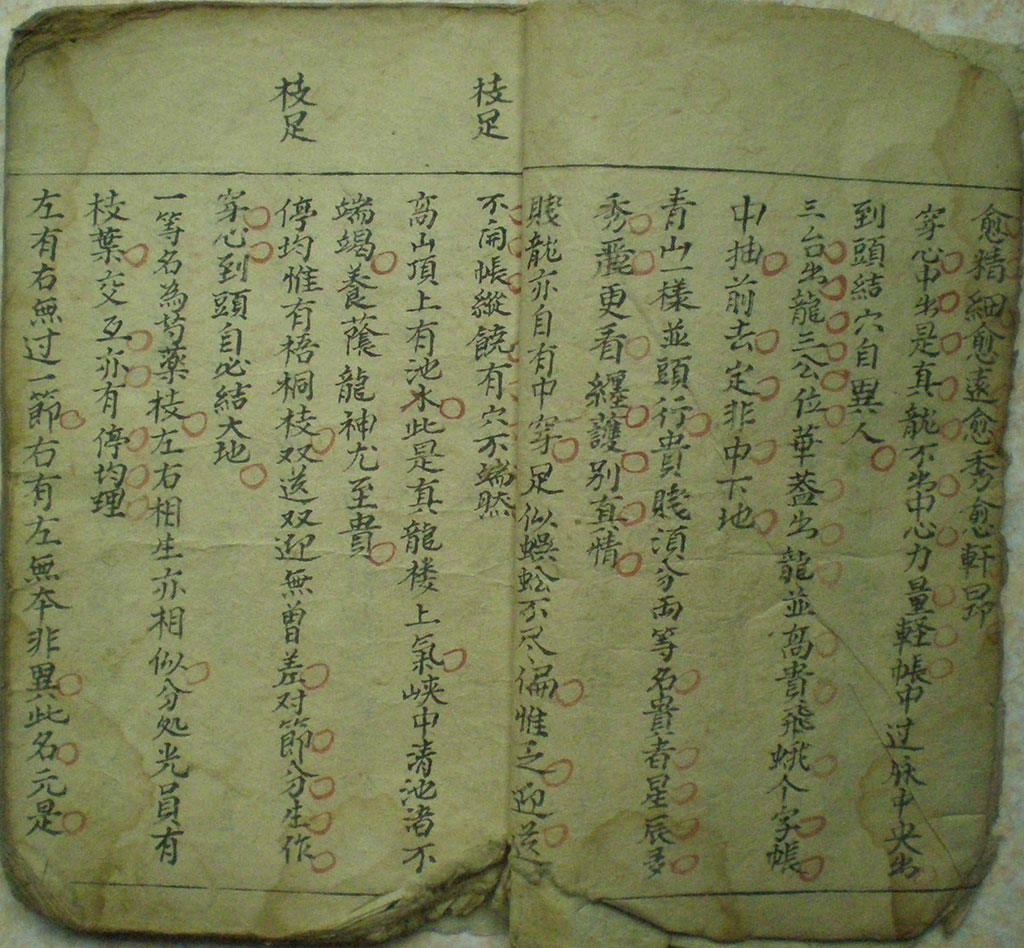 愈精細愈遠愈秀愈軒昂
穿心中出是真龍不出中心力量軽帳中过脉中央出
到頭結穴自異人
三台出龍三公位華蓋出龍並高貴飛蛾个字帳
中抽前去定非中下地
青山一樣並頭行貴賤須分両等名貴者星辰多
秀麗更看纏護别真情
賤龍亦自有中穿足似蜈蚣不尽偏惟乏迎送
枝足
不開帳縱饒有穴不端然
高山頂上有池水此是真龍楼上氣峡中清池渚不
端竭養蔭龍神尤至貴
枝足
停均惟有梧桐枝双送双迎無曽差対節分生作
穿心到頭自必結大地
一等名為芍藥枝左右相生亦相似分処光員有
枝葉交互亦有停均理
左有右無过一節右有左無夲非異此名元是